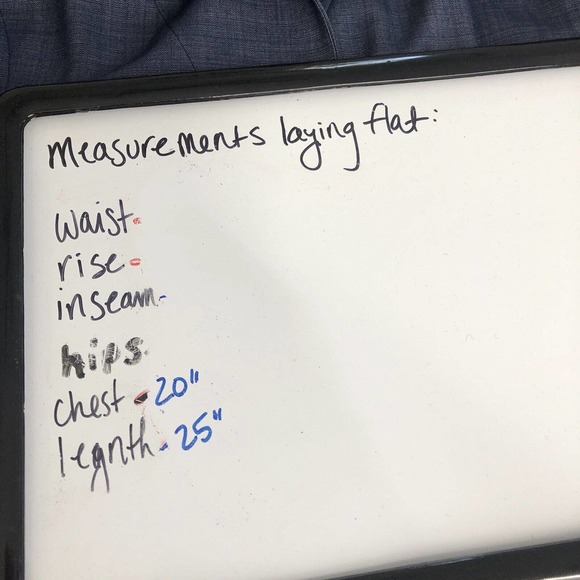 Measurements laying flat:
waist-
rise-
inseam-
hips-
chest - 20"
legnth - 25"